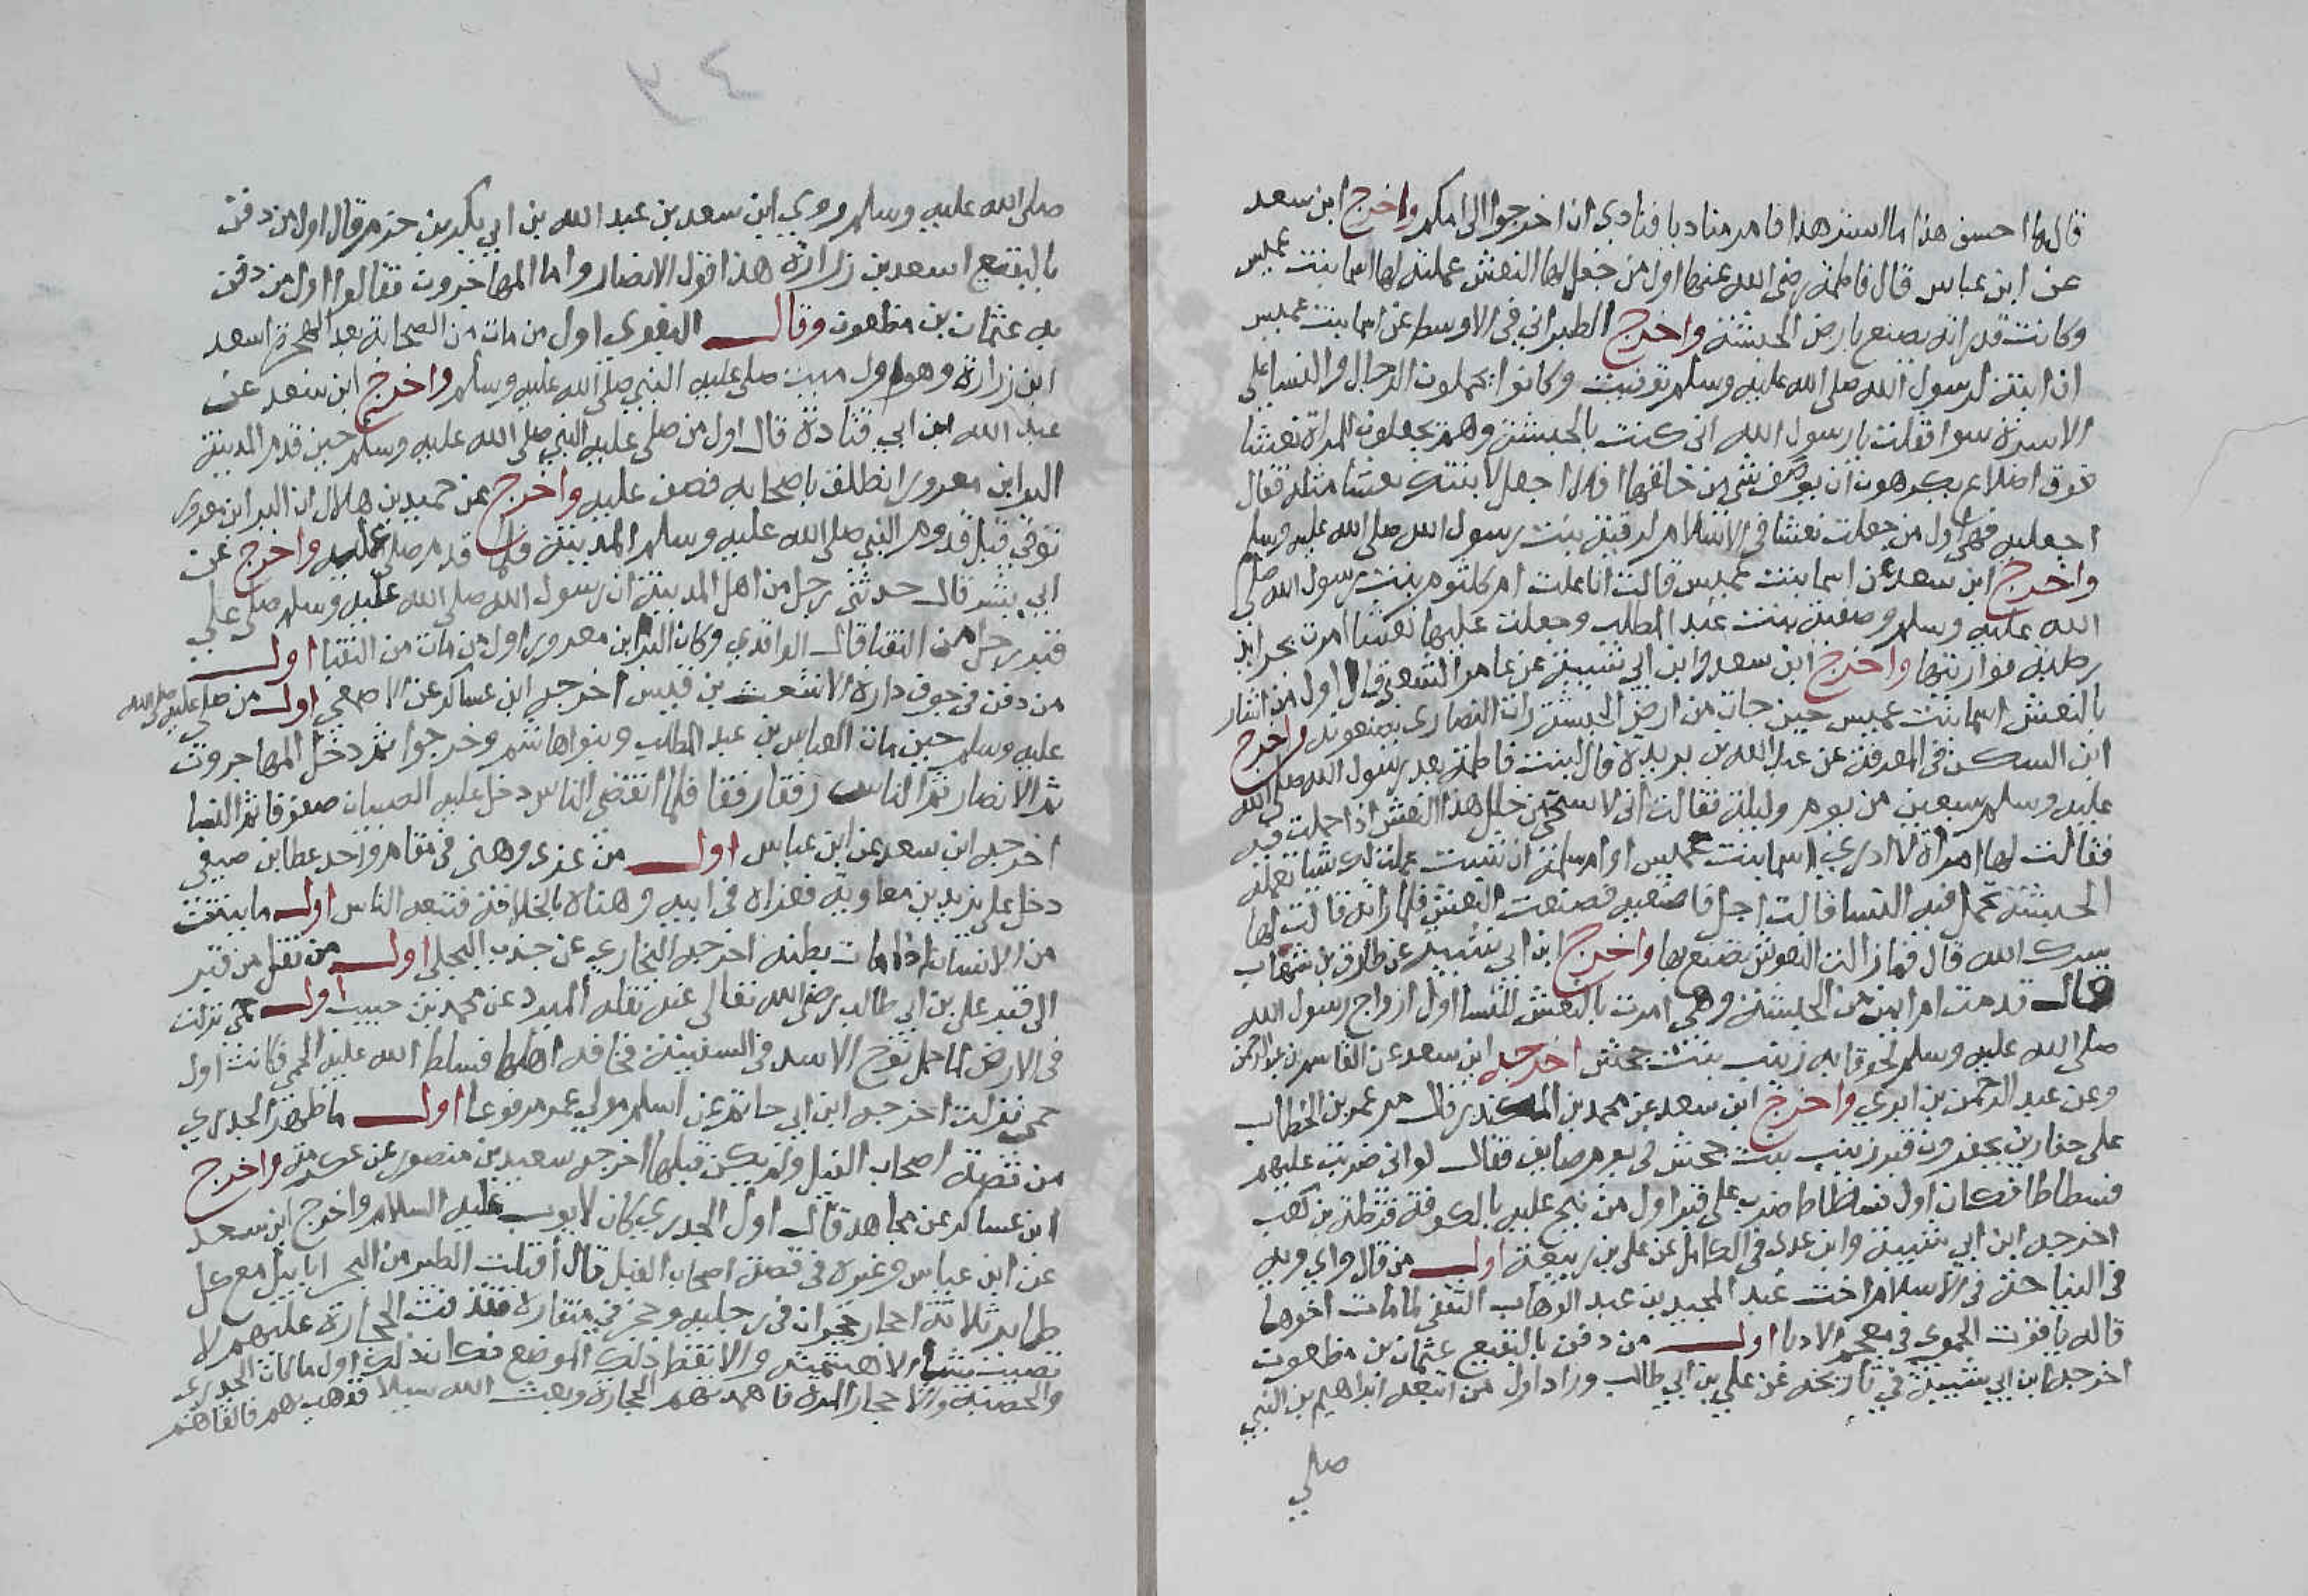 قال ما احسن هذا ما استر هذا فامر مناديا فنادى ان اخرجوا الى امكم واخرج ابن سعد
عن ابن عباس قال فاطمة رضى الله عنها اول من جعل لها النعش عملته لها اسما بنت عميس
وكانت قد راته يصنع بارض الحبشة واخرج الطبراني في الاوسط عن اسما بنت عميس
ان ابنة لرسول الله صلى الله عليه وسلم توفيت وكانوا يحملون الرجال والنسا على
الاسرة سوا فقلت يا رسول الله انى كنت بالحبشة وهم يجعلون للمراة نعشا
فوق اضلاع يكرهون ان يوصف شى من خلقها افلا اجعل لابنتك نعشا مثله فقال
اجعليه فهى اول من جعلت نعشا فى الاسلام لرقية بنت رسول الله صلى الله عليه وسلم
واخرج ابن سعد عن اسما بنت عميس قالت انا غسلت ام كلثوم بنت رسول الله صلى
الله عليه وسلم وصفية بنت عبد المطلب وجعلت عليها نعشا امرت بجرايد
رطبة فوارتها واخرج ابن سعد وابن ابي شيبة عن عامر الشعبي قال اول من اشار
بالنعش اسما بنت عميس حين جات من ارض الحبشة رات النصارى يصنعونه واخرج
ابن السكن فى المعرفة عن عبد الله بن بريدة قال لبثت فاطمة بعد رسول الله صلى الله
عليه وسلم سبعين من يوم وليلة فقالت انى لاستحى من خلل هذا النعش اذا حملت فيه
فقالت لها امراة لا ادري اسما بنت عميس او ام سلمة ان شيت عملت لك شيا تعمله
الحبشة تحمل فيه النسا قالت اجل فاصنعيه فصنعت النعش فلما راته قالت لها
سترك الله قال فما زالت النعوش تصنع بها واخرج ابن ابي شيبة عن طارق بن شهاب
قال قدمت ام ايمن من الحبشة وهي امرت بالنعش للنسا اول ازواج رسول الله
صلى الله عليه وسلم لحوقا به زينب بنت جحش اخرجه ابن سعد عن القاسم بن عبد الرحمن
وعن عبد الرحمن بن ابزي واخرج ابن سعد عن محمد بن المنكدر قال مر عمر بن الخطاب
على حفارين يحفرون قبر زينب بنت جحش في يوم صايف فقال لو انى ضربت عليهم
فسطاطا فكان اول فسطاط ضرب على قبر اول من نيح عليه بالكوفة قرظة بن كعب
اخرجه ابن ابي شيبة وابن عدى فى الكامل عن على بن ربيعة اول من قال واي ويه
فى النياحة فى الاسلام اخت عبد المجيد بن عبد الوهاب الثقفى لما مات اخوها
قاله ياقوت الحموى في معجم الادبا اول من دفن بالبقيع عثمان بن مظعون
اخرجه ابن ابي شيبة في تاريخه عن علي بن ابي طالب وزاد اول من اتبعه ابراهيم بن النبي
صلى
صلى الله عليه وسلم وروي ابن سعد بن عبد الله بن ابي بكر بن حزم قال اول من دفن
بالبقيع اسعد بن زرارة هذا قول الانصار واما المهاجرون فقالوا اول من دفن
به عثمان بن مظعون وقال البغوى اول من مات من الصحابة بعد الهجرة اسعد
ابن زرارة وهو اول ميت صلى عليه النبي صلى الله عليه وسلم واخرج ابن سعد عن
عبد الله ابن ابي قتادة قال اول من صلى عليه النبي صلى الله عليه وسلم حين قدم المدينة
البرا بن معرور انطلق باصحابه فصف عليه واخرج عن حميد بن هلال ان البرا بن معرور
توفي قبل قدوم النبي صلى الله عليه وسلم المدينة فلما قدم صلى عليه واخرج عن
ابي بشر قال حدثنى رجل من اهل المدينة ان رسول الله صلى الله عليه وسلم صلى على
قبر رجل من النقبا قال الواقدي وكان البرا بن معرور اول من مات من النقبا اول
من دفن في جوف داره الاشعث بن قيس اخرجه ابن عساكر عن الاصمعي اول من صلى عليه صلى الله
عليه وسلم حين مات العباس بن عبد المطلب وبنوا هاشم وخرجوا ثم دخل المهاجرون
ثم الانصار ثم الناس رفقا رفقا فلما انقضى الناس دخل عليه الصبيان صفوفا ثم النسا
اخرجه ابن سعد عن ابن عباس اول من عزى وهنى فى مقام واحد عطا بن صيفي
دخل على يزيد بن معاوية فعزاه فى ابيه وهناه بالخلافة فتبعه الناس اول ما ينتن
من الانسان اذا مات بطنه اخرجه البخاري عن جندب البجلى اول من نقل من قبر
الى قبر على بن ابي طالب رضى الله تعالى عنه نقله المبرد عن محمد بن حبيب اول حمى نزلت
فى الارض لما حمل نوح الاسد فى السفينة فخافه اهلها فسلط الله عليه الحمى فكانت اول
حمى نزلت اخرجه ابن ابي حاتم عن اسلم مولي عمر مرفوعا اول ما ظهر الجدري
من قصة اصحاب الفيل ولم يكن قبلها اخرجه سعيد بن منصور عن عكرمة واخرج
ابن عساكر عن مجاهد قال اول الجدري كان لايوب عليه السلام واخرج ابن سعد
عن ابن عباس وغيره في قصة اصحاب الفيل قال أقبلت الطير من البحر ابابيل مع كل
طاير ثلاثة احجار حجران فى رجليه وحجر في منقاره فقذفت الحجارة عليهم لا
تصيب شيا الا هشمته والا نفط ذلك الموضع فكان ذلك اول ما كان الجدرى
والحصبة والاحجار المرة فاهمدتهم الحجارة وبعث الله سيلا فذهب بهم فالقاهم